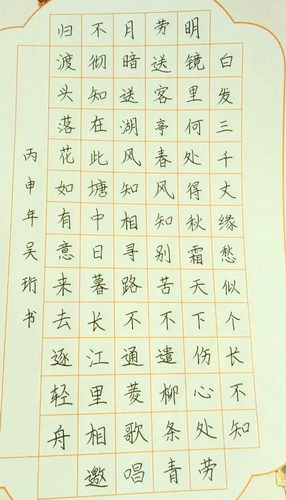 白发三千丈缘愁似个长不知
明镜里何处得秋霜天下伤心处劳
劳送客亭春风知别苦不遣柳条青
月暗送湖风相寻路不通菱歌唱
不彻知在此塘中日暮长江里相邀
归渡头落花如有意来去逐轻舟
丙申年吴珩书